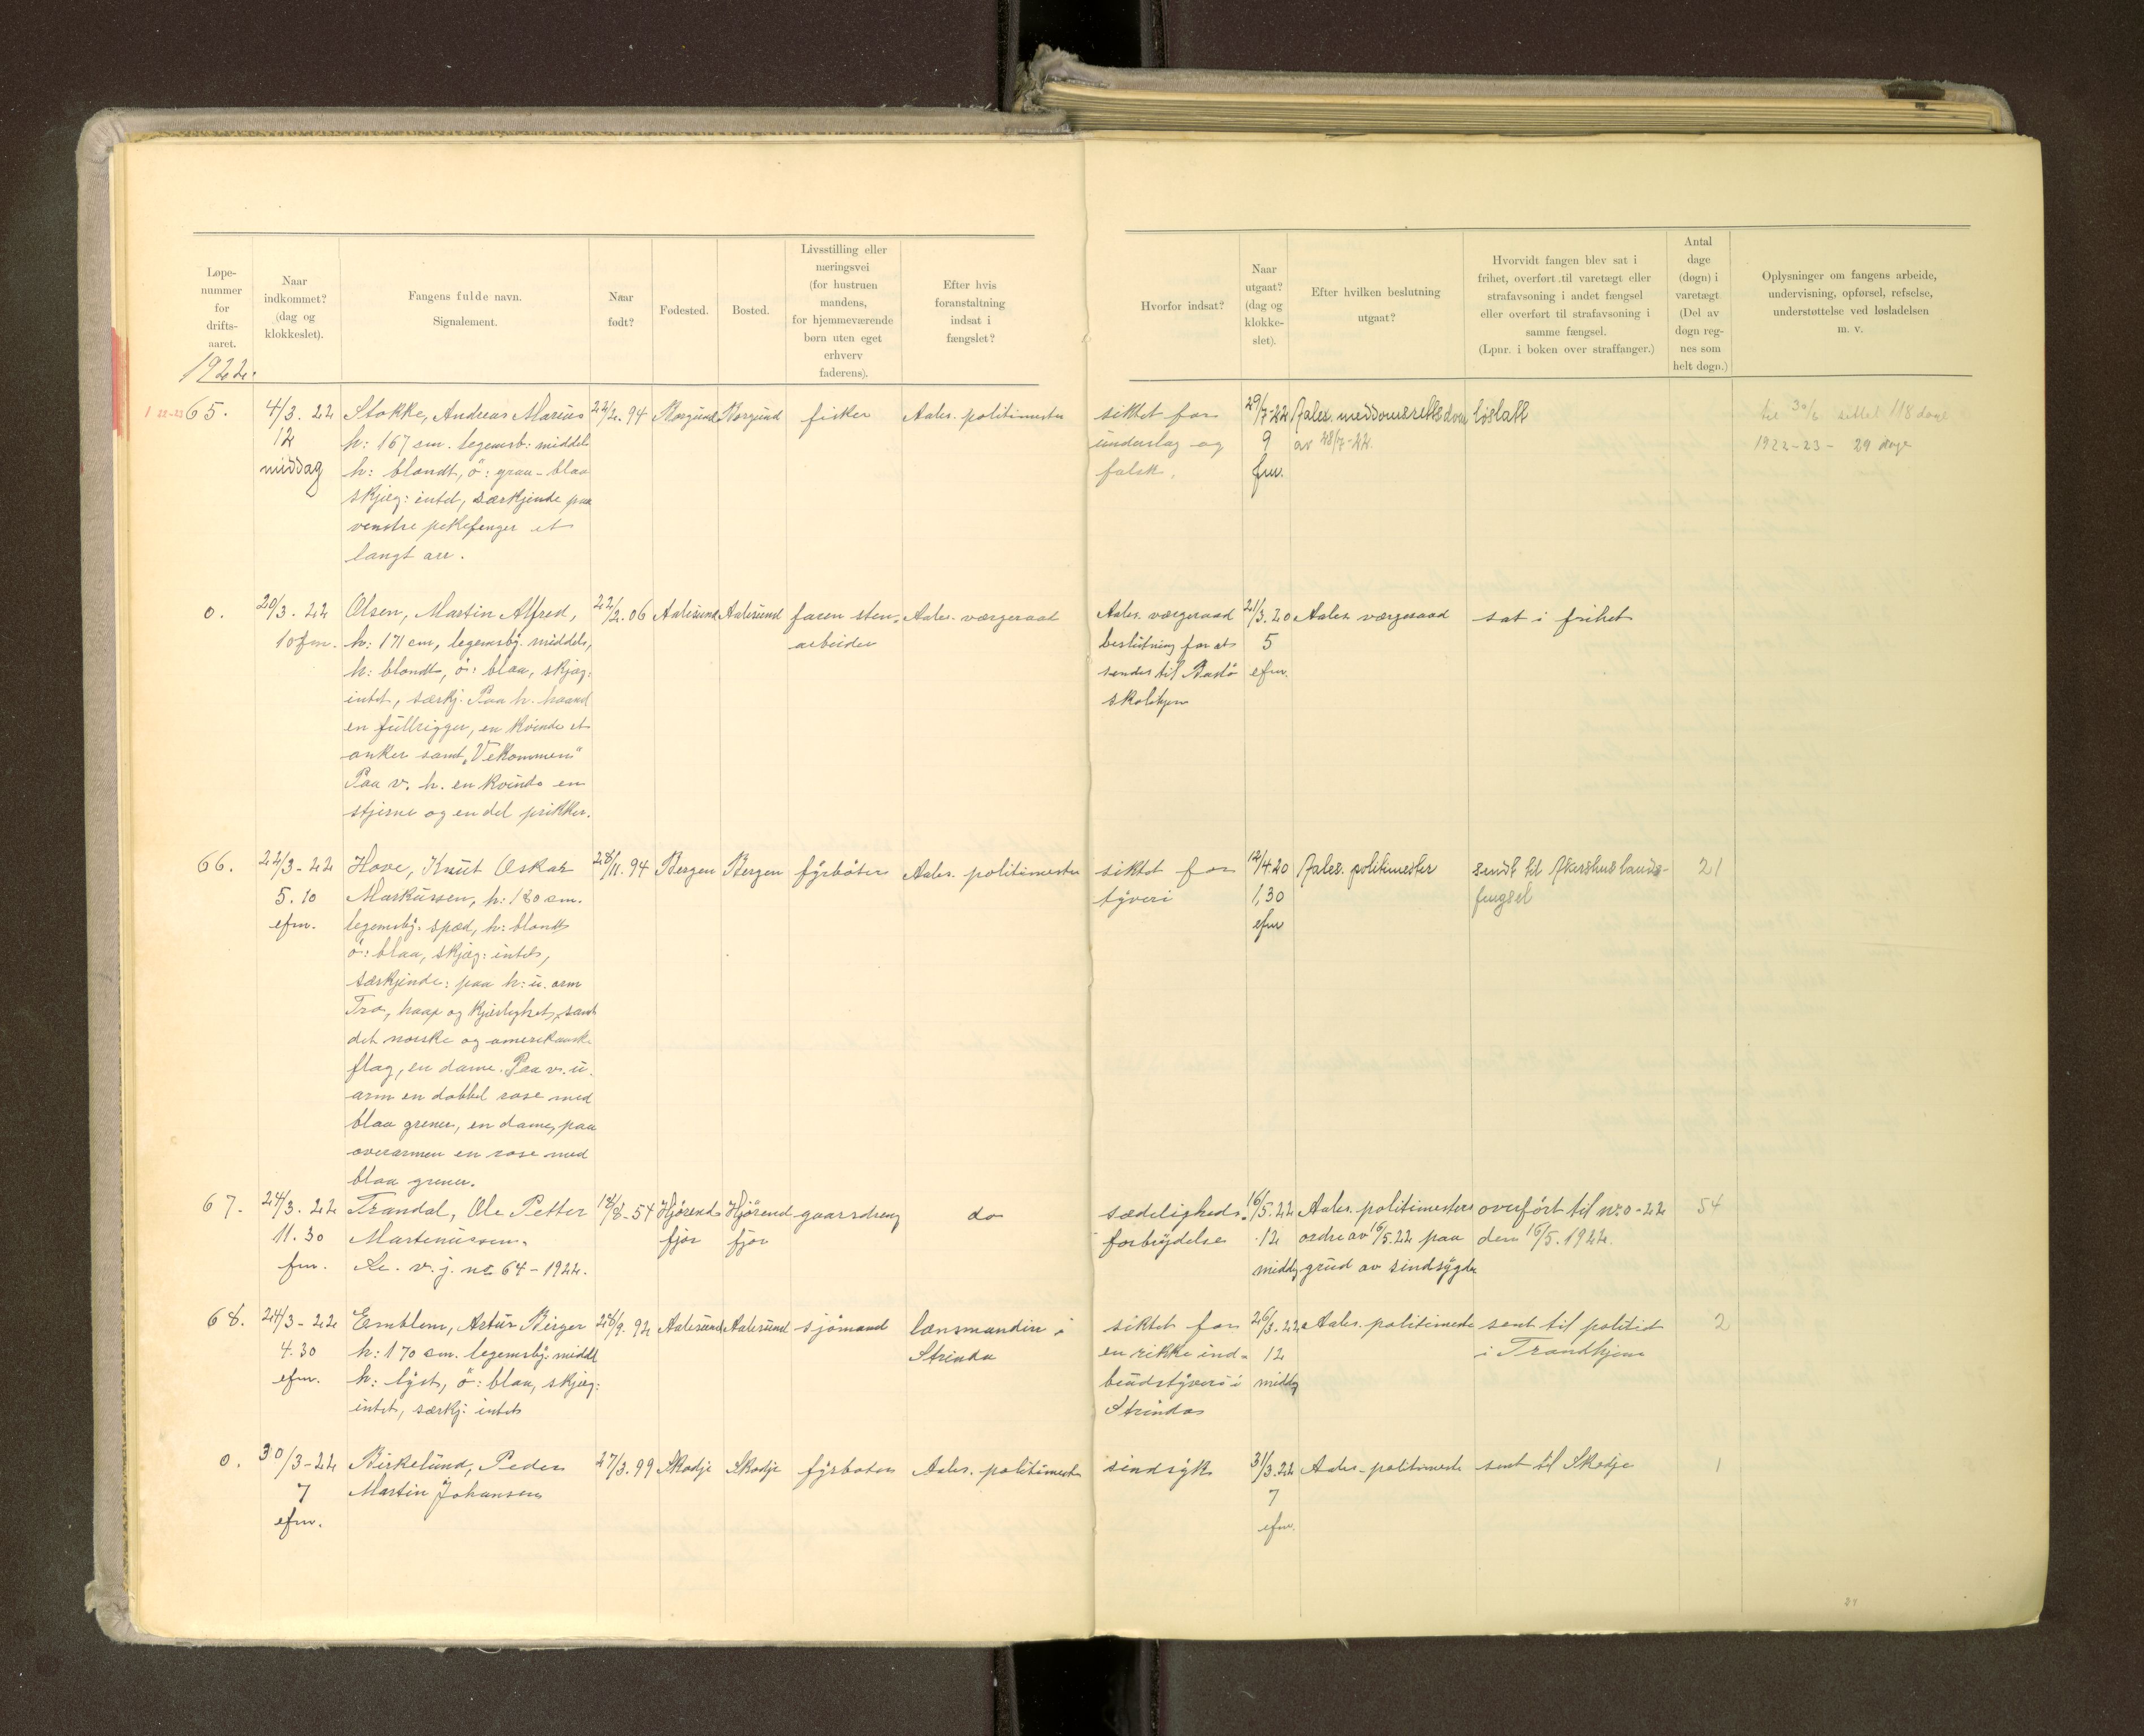 Løpe-
nummer
for
drifts-
aaret.
Naar
indkommet?
(dag og
klokkeslet).
Fangens fulde navn.
Signalement.
Naar
født?
Fødested.
Bosted.
Livsstilling eller
næringsvei
(for hustruen
mandens,
for hjemmeværende
børn uten eget
erhverv
faderens).
Efter hvis
foranstaltning
indsat i
fængslet?
Hvorfor indsat?
Naar
utgaat?
(dag og
klokke-
slet).
Efter hvilken beslutning
utgaat?
Hvorvidt fangen blev sat i
frihet, overført til varetægt eller
strafavsoning i andet fængsel
eller overført til strafavsoning i
samme fængsel.
(Lpnr. i boken over straffanger.)
Antal
dage
(døgn) i
varetægt
(Del av
døgn reg-
nes som
helt døgn.)
Oplysninger om fangens arbeide,
undervisning, opførsel, refselse,
understøttelse ved løsladelsen
m. v.
1922.
65.
4/3. 22
12
middag
Stokke, Andreas Marius
h: 167 cm. legemsb: middel
h: blondt, ö: graa-blaa
skjeg: intet, særkjende paa
venstre pekefinger et
langt arr.
22/2. 94
Borgund
Borgund
fisker
Aales. politimester
siktet for
underslag og
falsk.
29/7-22
9
fm.
Aales. meddomsrettsdom
av 28/7-22.
löslatt
til 30/6 sittet 118 dage
1922-23 - 29 dage
0.
20/3. 22
10 fm.
Olsen, Martin Alfred,
h: 171 cm, legemsbÿ. middels,
h: blondt, ö: blaa, skjæg:
intet, særkj: Paa h. haand
en fullrigger, en kvinde et
anker samt „Vekommen"
Paa v. h. en kvinde en
stjerne og en del prikker.
22/2. 06
Aalesund
Aalesund
faren sten-
arbeider
Aales. værgeraad
Aales. værgeraad
beslutning for at
sendes til Bastö
skolehjem
21/3. 20
5
efm.
Aales. værgeraad
sat i frihet
66.
22/3-22
5.10
efm.
Hove, Knut Oskar
Markussen, h: 180 cm.
legemsbÿ: spæd, h: blondt
ö: blaa, skjæg: intet,
særkjende: paa h: u. arm
Tro, haap og kjærlighet, samt
det norske og amerikanske
flag, en dame. Paa v. u.
arm en dobbel rose med
blaa grener, en dame, paa
overarmen en rose med
blaa grener.
28/11. 94
Bergen
Bergen
fÿrböter
Aales. politimester
siktet for
tÿveri
12/4. 20
1,30
efm
Aales. politimester
sendt til Akershus lands-
fengsel
21
67.
24/3. 22
11. 30
fm.
Trandal, Ole Petter
Martinussen.
Se. v. j. no 64-1922.
18/8-54
Hjörend
fjor
Hjörend
fjor
gaardsdreng
do
sædeligheds-
forbrÿdelse
16/5. 22
12
middg
Aales. politimesters
ordre av 16/5. 22 paa
grund av sindsÿgdom
overfört til nr. 0-22
den 16/5. 1922.
54
68.
24/3-22
4. 30
efm.
Emblem, Artur Birger
h: 170 cm. legemsbÿ: middel
h: lÿst, ö: blaa, skjæg:
intet, særkj: intet
28/9. 92
Aalesund
Aalesund
sjömand
lænsmanden i
Strinda
siktet for
en rikke ind-
brudstÿveri i
Strinda
26/3. 22
12
middg
Aales. politimester
sent til politiet
i Trondhjem
2
0.
30/3-22
7
efm.
Birkelund, Peder
Martin Johansen
27/3. 99
Skodje
Skodje
fÿrböter
Aales. politimester
sindsÿk
31/3. 22
7
efm.
Aales. politimester
sent til Skodje
1